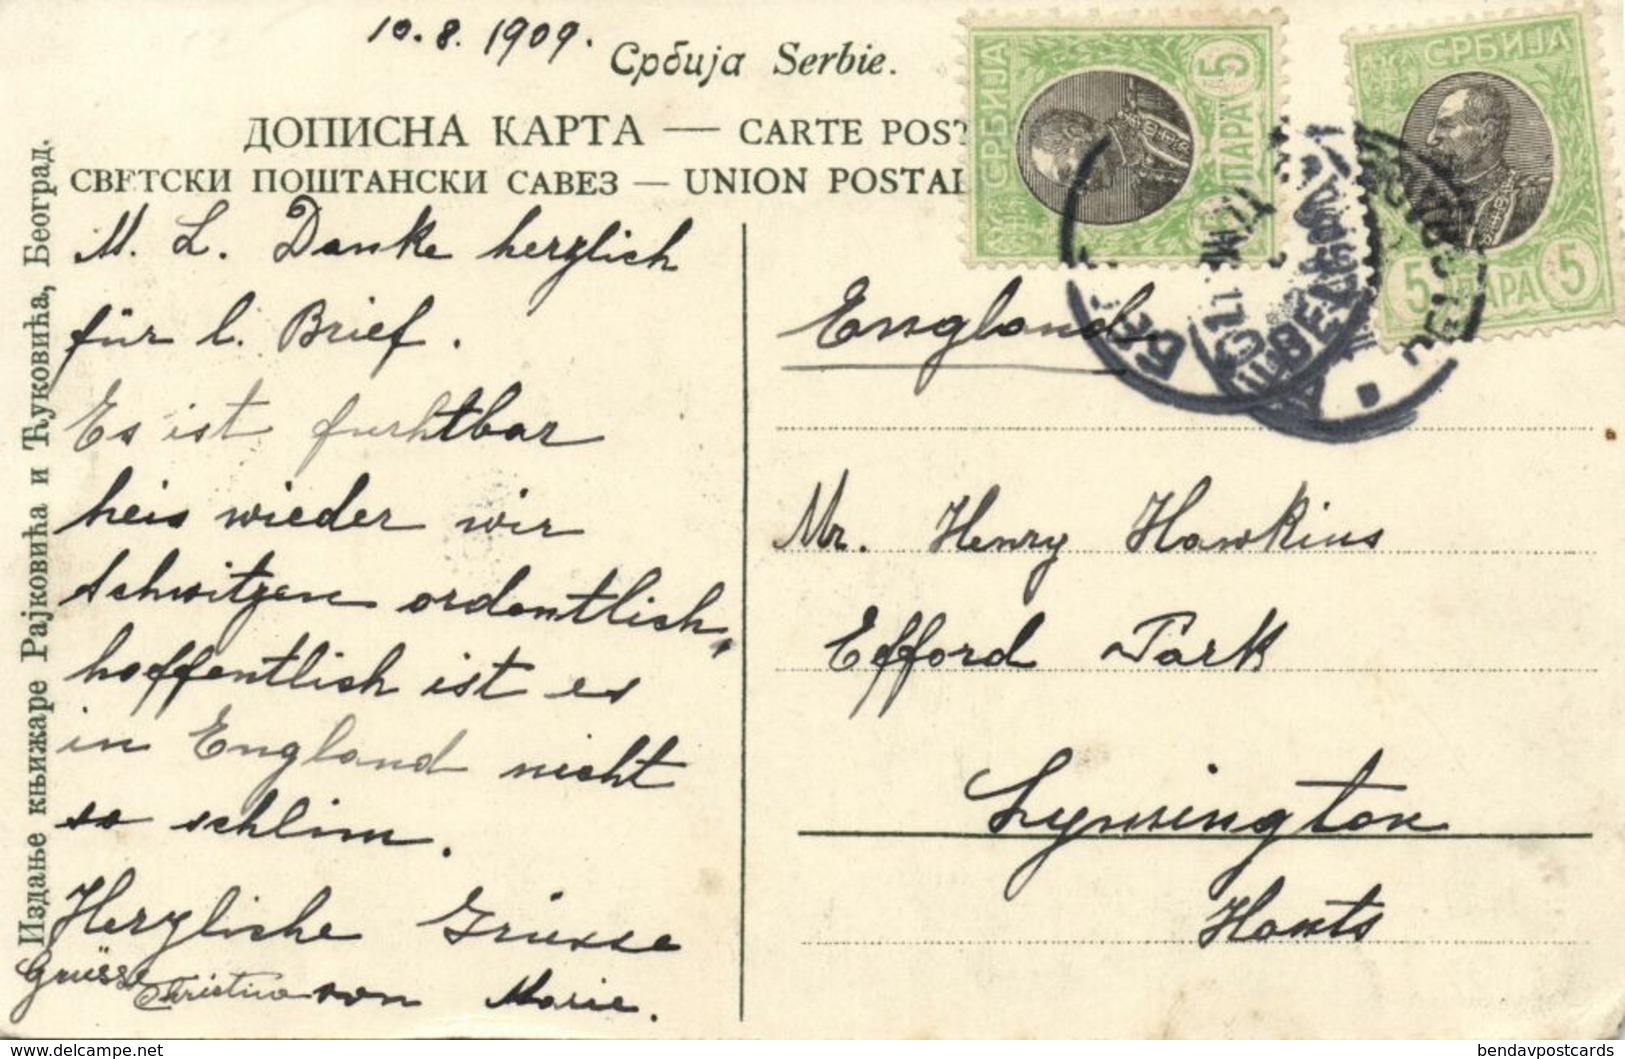 10.8.1909.
Србија Serbie.
ДОПИСНА КАРТА — CARTE POST
СВЕТСКИ ПОШТАНСКИ САВЕЗ — UNION POSTAL
Издање књижаре Рајковића и Ћуковића, Београд.
СРБИЈА
5 ПАРА
СРБИЈА
5 ПАРА 5
M. L. Danke herzlich
für l. Brief.
Es ist furhtbar
heis wieder wir
schwitzen ordentlich,
hoffentlich ist es
in England nicht
so schlim.
Herzliche Grüsse
von Marie.
Grüsse Christina
England
Mr. Henry Hawkins
Efford Park
Lymington
Hants
https://www.delcampe.net
bendavpostcards